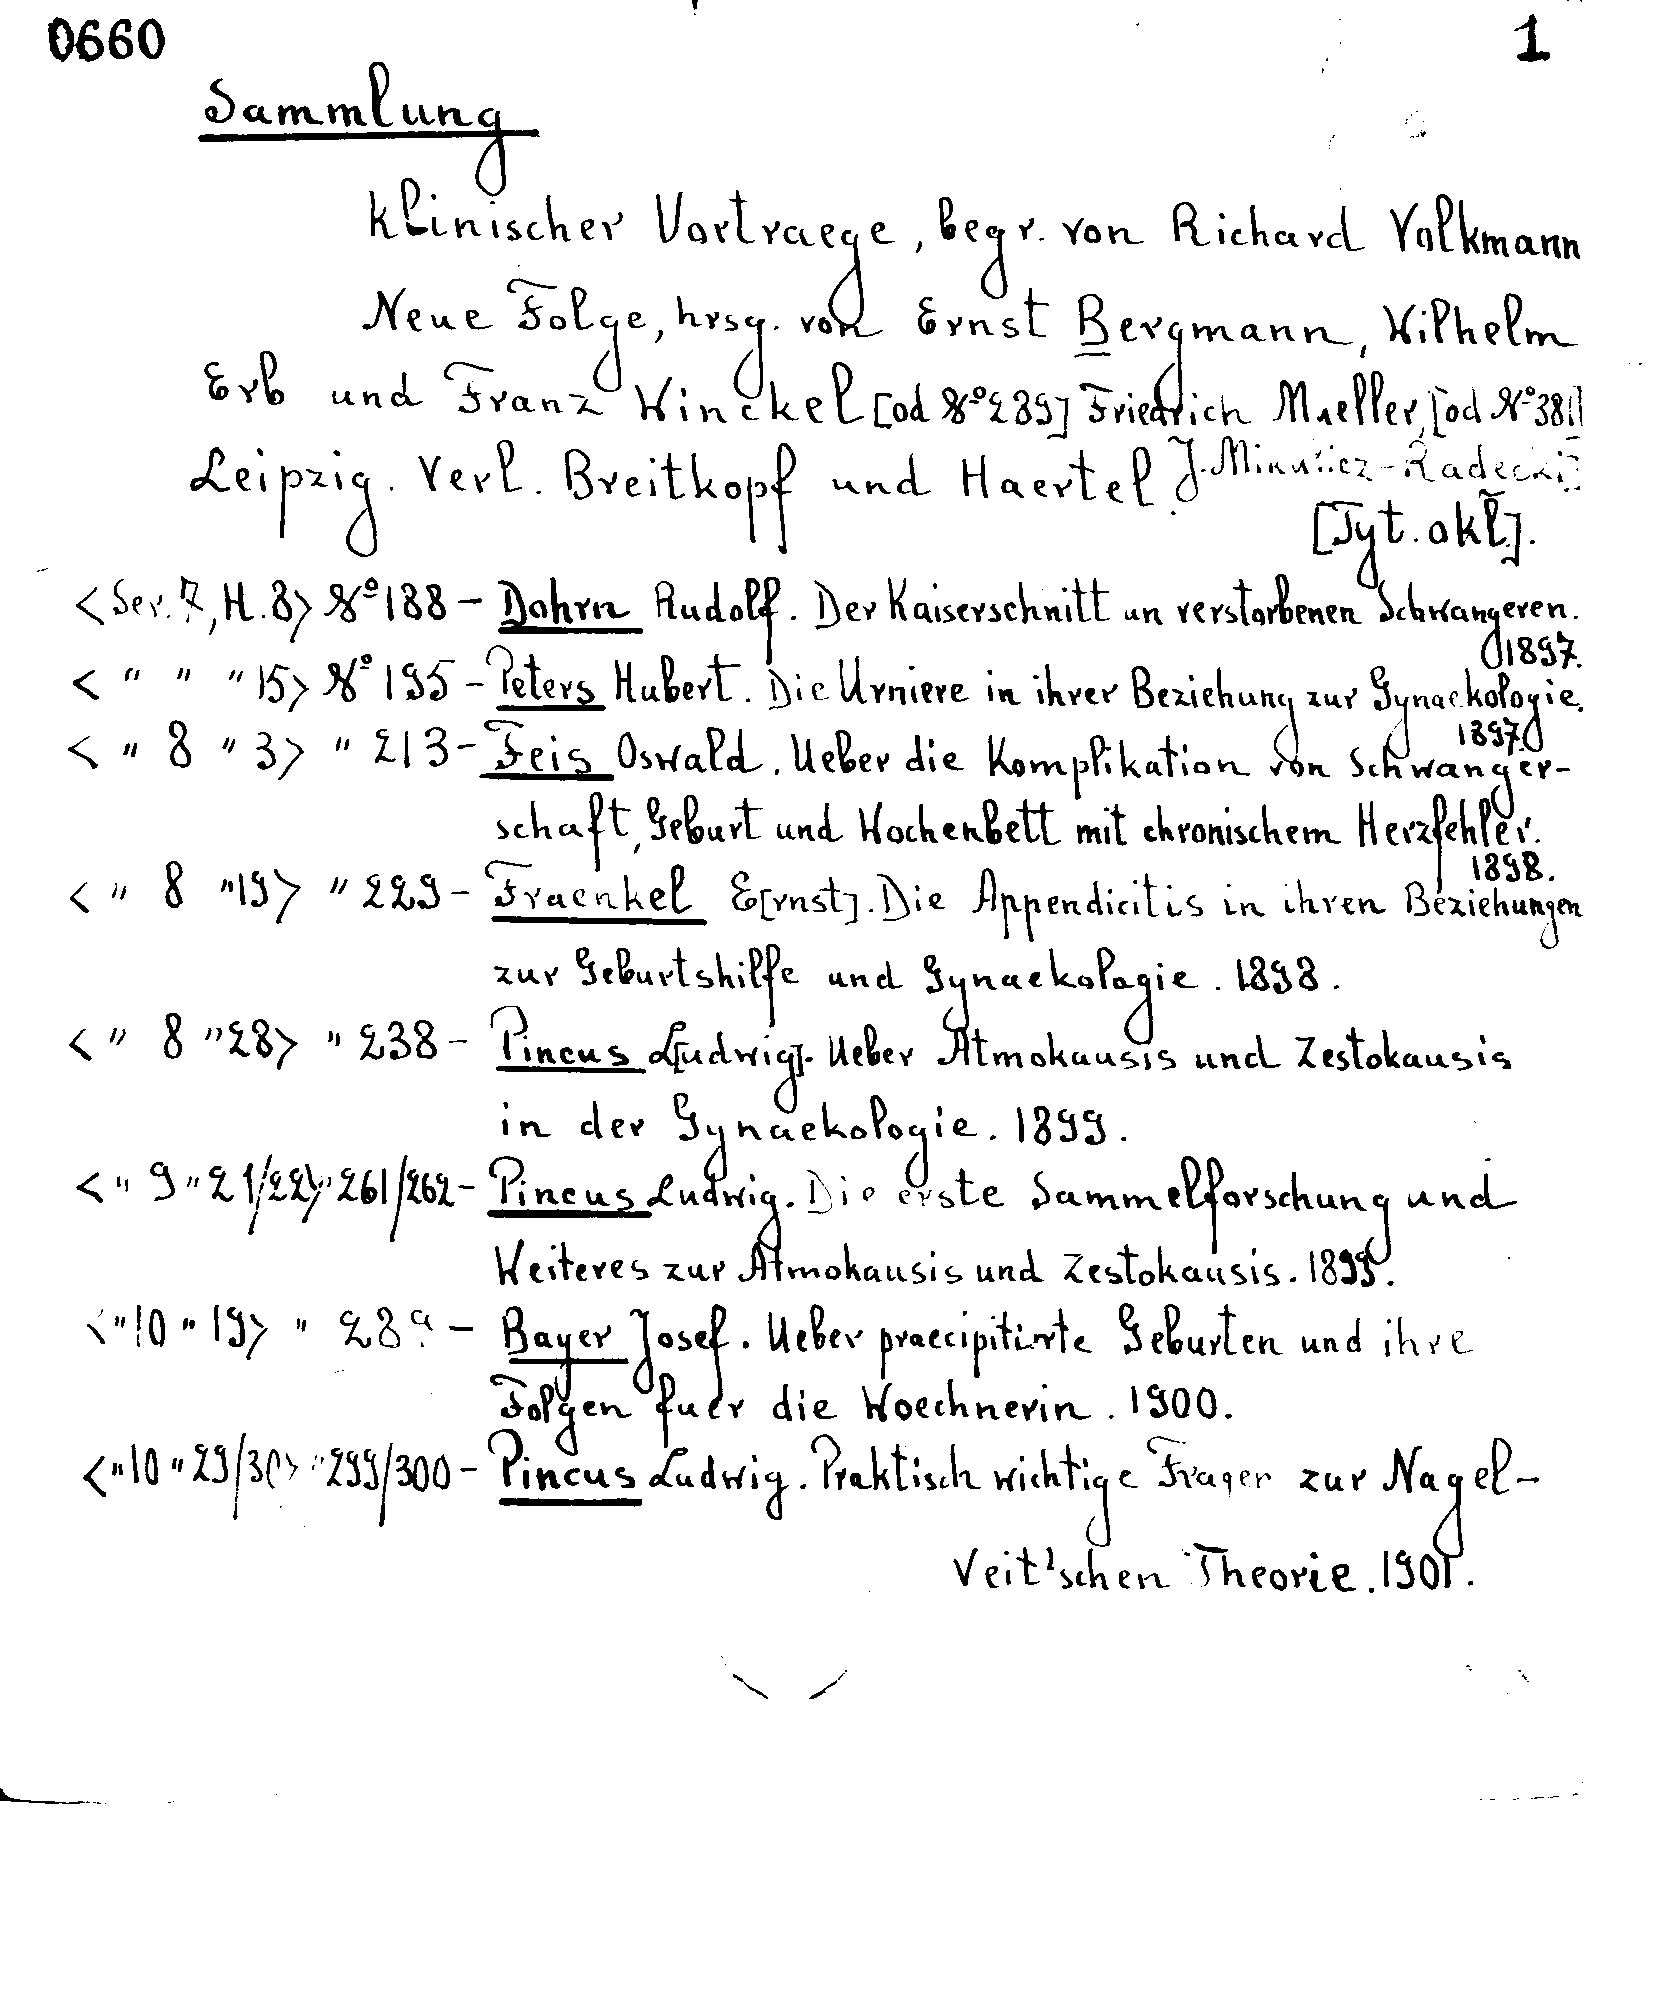 0660 1
Sammlung
klinischer Vortraege, begr. von Richard Volkmann
Neue Folge, hrsg. von Ernst Bergmann, Wilhelm
Erb und Franz Winckel [od № 289] Friedrich Mueller, [od № 381]
Leipzig. Verl. Breitkopf und Haertel J. Mikulicz-Radecki]
[Tyt. okł].
<Ser. 7, H. 8> № 188 - Dohrn Rudolf. Der Kaiserschnitt an verstorbenen Schwangeren.
1897.
< " " " 15> № 195 - Peters Hubert. Die Urniere in ihrer Beziehung zur Gynaekologie.
1897.
< " 8 " 3> " 213 - Feis Oswald. Ueber die Komplikation von Schwanger-
schaft, Geburt und Wochenbett mit chronischem Herzfehler.
1898.
< " 8 " 19> " 229 - Fraenkel E[rnst]. Die Appendicitis in ihren Beziehungen
zur Geburtshilfe und Gynaekologie. 1898.
< " 8 " 28> " 238 - Pincus L[udwig]. Ueber Atmokausis und Zestokausis
in der Gynaekologie. 1899.
< " 9 " 21/22> " 261/262 - Pincus Ludwig. Die erste Sammelforschung und
Weiteres zur Atmokausis und Zestokausis. 1899.
< " 10 " 19> " 289 - Bayer Josef. Ueber praecipitirte Geburten und ihre
Folgen fuer die Woechnerin. 1900.
< " 10 " 29/30> " 299/300 - Pincus Ludwig. Praktisch wichtige Fragen zur Nagel-
Veit'schen Theorie. 1901.